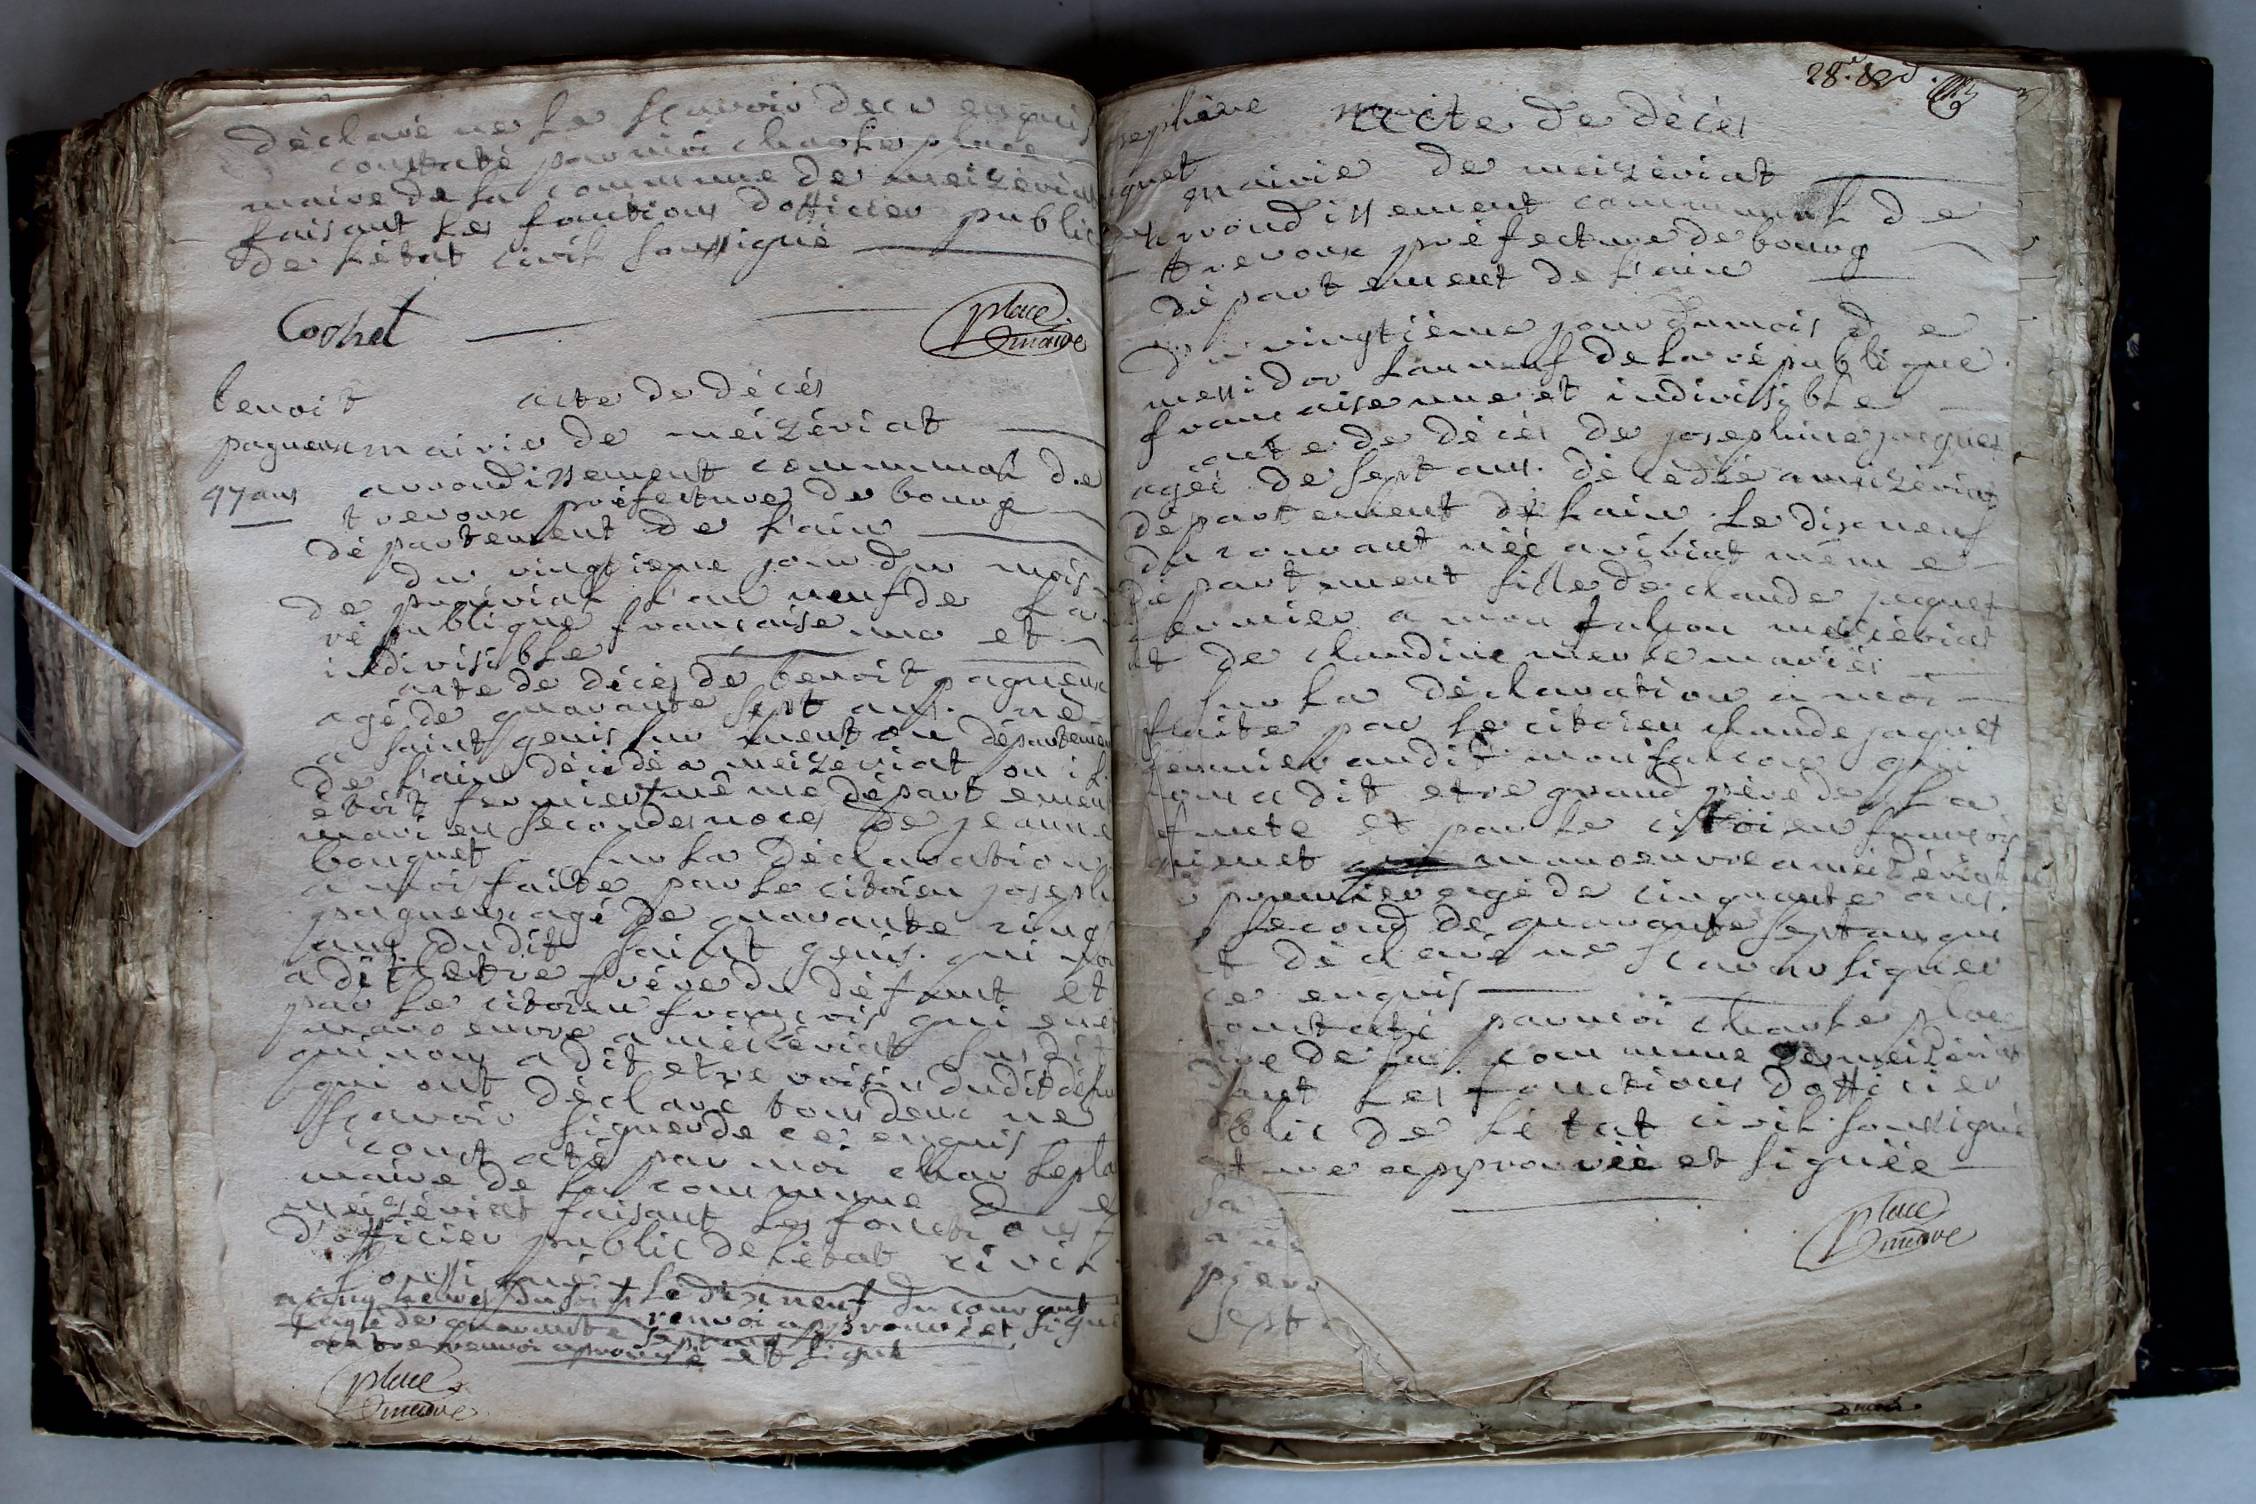 déclaré ne le sçavoir de ce enquis
constaté par moi charle place
maire de la commune de meizériat
faisant les fonctions d'officier public
de l'état civil soussigné
Cochet
place
maire
benoit
pagneux
47 ans
acte de décés
mairie de meizériat
arrondissement communal de
trevoux préfecture de bourg
département de l'ain
du vingtieme jour du mois
de prairial l'an neuf de la
république francaise une et
indivisible
acte de décés de benoit pagneux
agé de quarante sept ans. né
a saint genis sur menton département
de l'ain décédé a meizeriat ou il
étoit fermier même département
mari en secondes noces de jeanne
bouquet sur la déclaration
a moi faite par le citoien joseph
pagneux agé de quarante cinq
ans dudit saint genis. qui
a dit etre frére du défunt et
par le citoien francois
manoeuvre a meizériat susdit
qui nous a dit etre voisin dudit
qui ont déclaré tous deux ne
sçavoir signer de ce enquis
constaté par moi charle
maire de la commune de
meizériat faisant les fonctions
d'officier public de l'état civil
soussigné
a cinq heures du soir le dix neuf du courant
agé de quarante sept ans renvoi approuvé et signé
autre renvoi aprouvé et signé
place
maire
28
acte de décés
mairie de meizériat
arrondissement communal de
trevoux préfecture de bourg
département de l'ain
du vingtiéme jour du mois de
messidor l'an neuf de la république
francaise une et indivisible
acte de décés de josephine jaquet
agéé de sept ans. décédéé a meizériat
département de l'ain le dix neuf
du courant néé a viriat même
département fille de claude jaquet
fermier a mon falcon meizériat
et de claudine merle mariés
sur la déclaration a moi
faite par le citoien claude jaquet
fermier audit monfalcon qui
nous a dit etre grand pére de la
et par le citoien francois
manoeuvre a meizériat
premier agé de cinquante ans.
second de quarante sept ans qui
déclaré ne scavoir signer
ce enquis
constaté par moi charle place
de la commune de meizériat
les fonctions d'officier
de l'état civil soussigné
approuvéé et signéé
place
maire